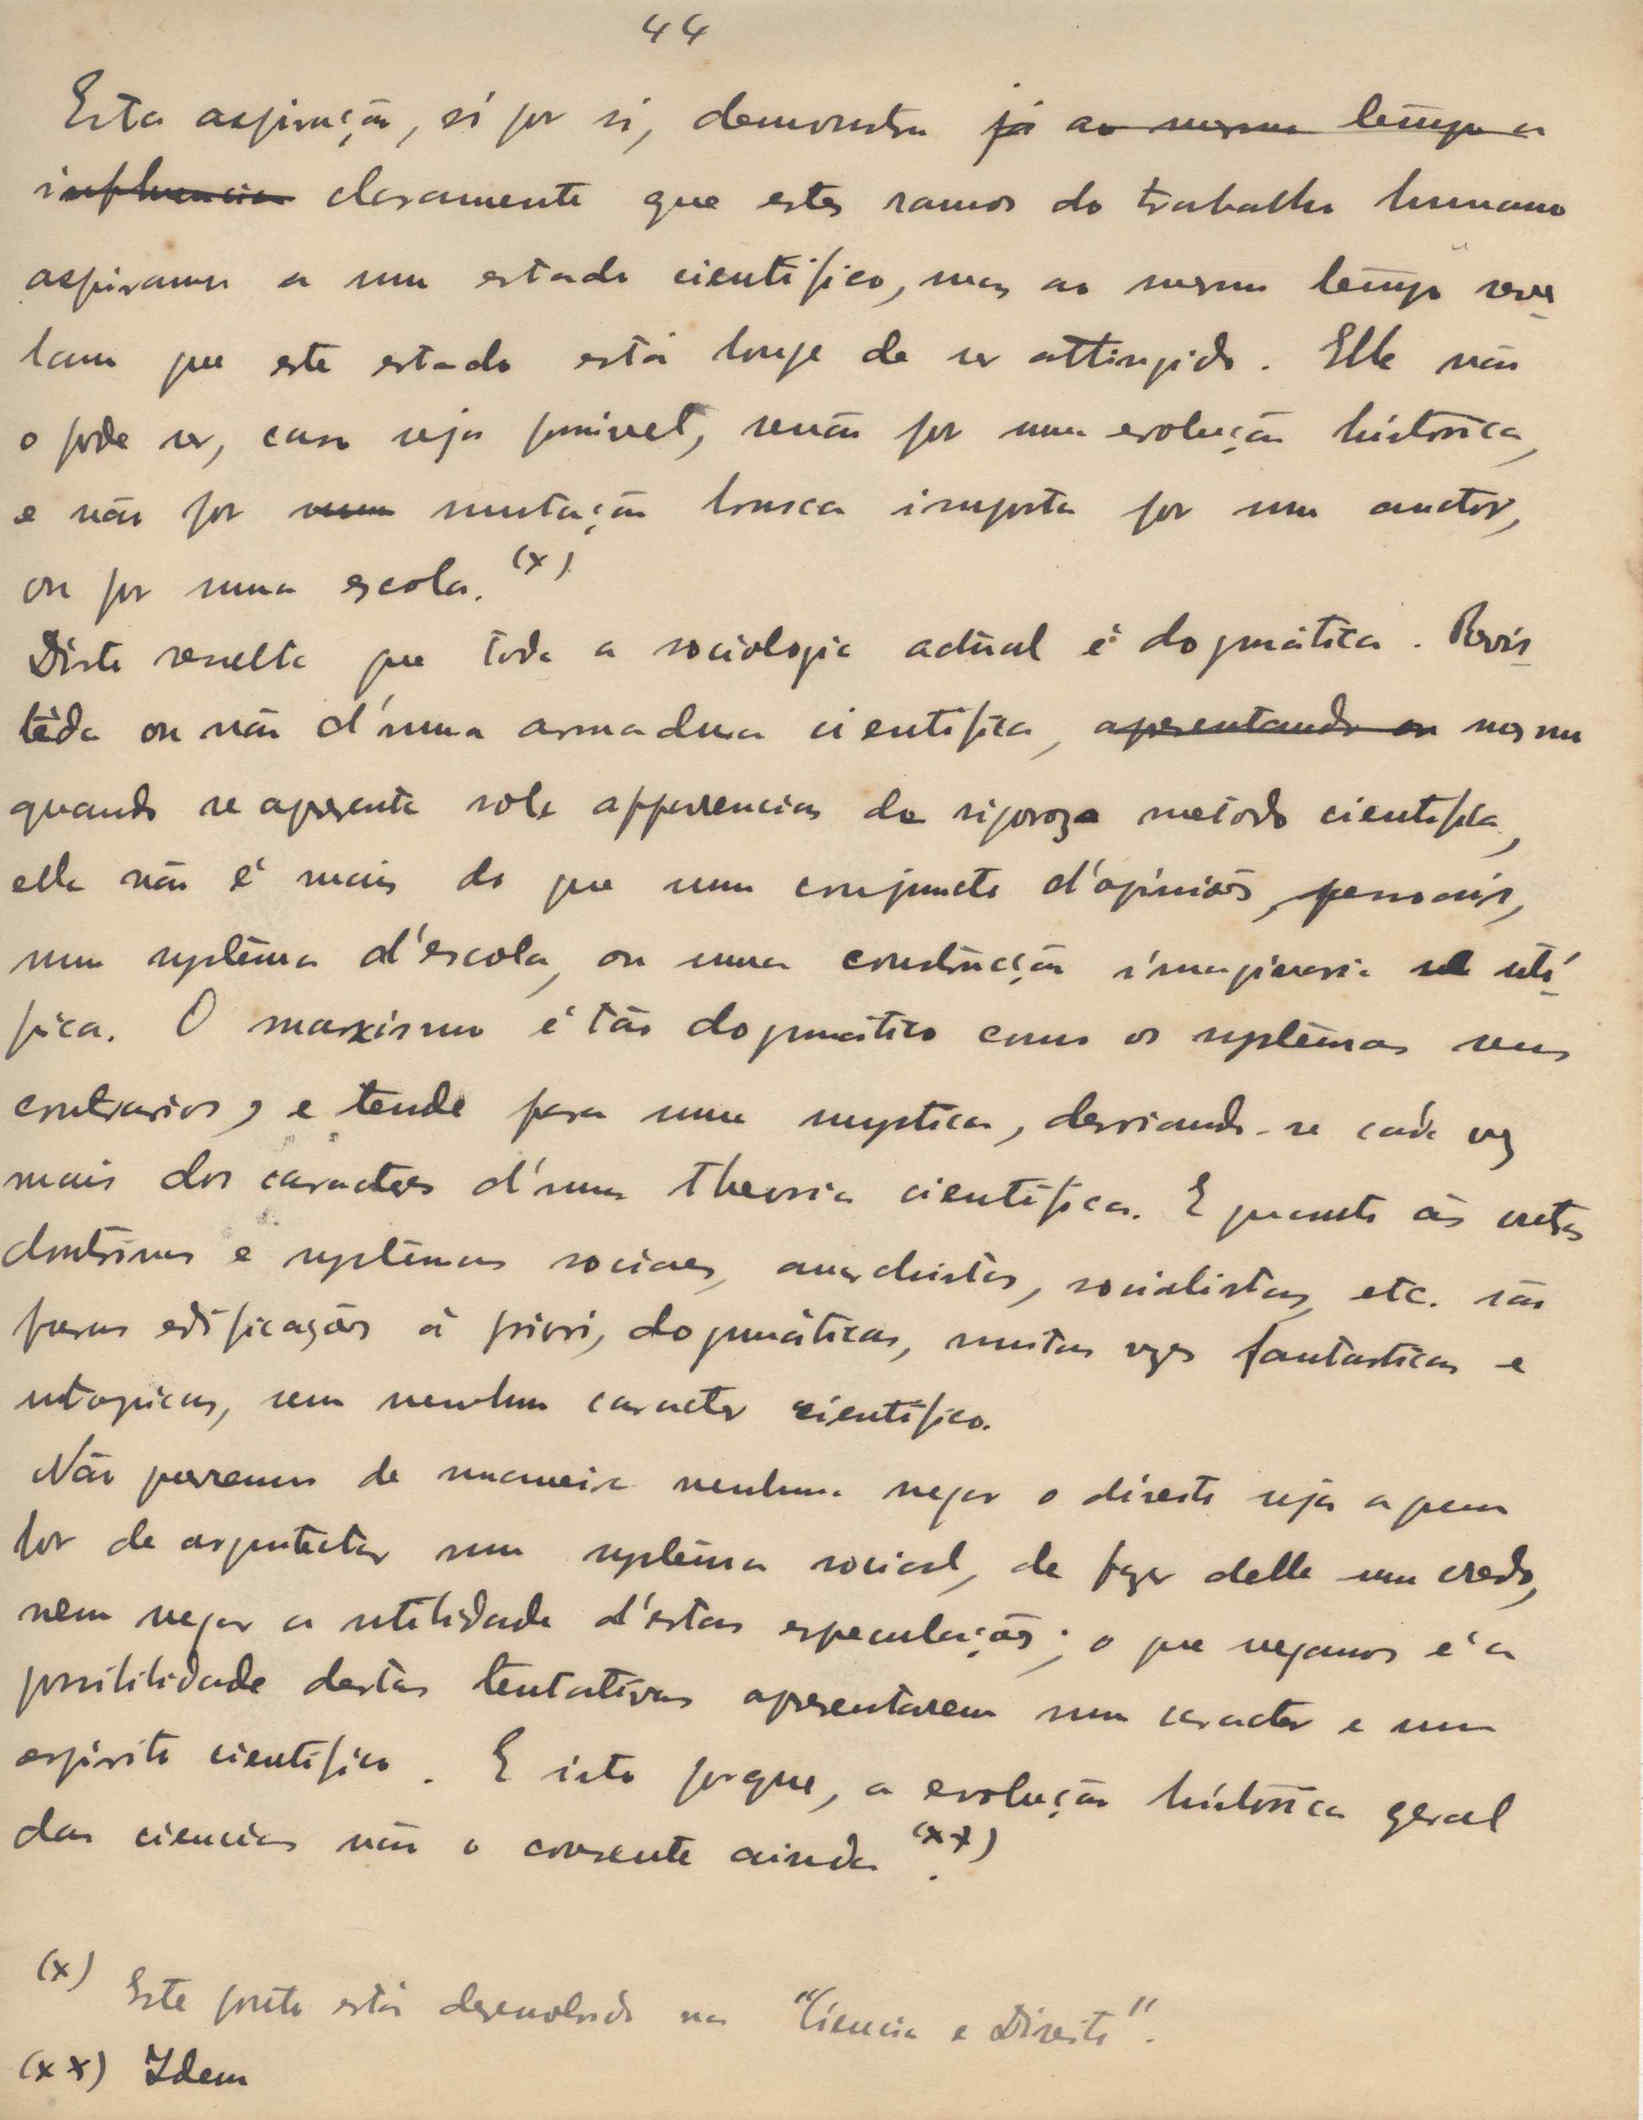 44
Esta aspiração, só por si, demonstra já ao mesmo tempo a
influencia claramente que estes ramos do trabalho humano
aspiram a um estado cientifico, mas ao mesmo tempo reve
lam que este estado está longe de ser attingido. Elle não
o pode ser, caso seja possivel, senão por uma evolução histórica,
e não por uma mutação brusca imposta por um auctor,
ou por uma escola. (x)
Disto resulta que toda a sociologia actual é dogmática. Revis
tida ou não d'uma armadura cientifica, apresentando ou mesmo
quando se apresenta sob apparencias de rigoroso metodo cientifico,
ella não é mais do que um conjuncto d'opiniões pessoais,
um systêma d'escola, ou uma construcção imaginaria
fica. O marxismo é tão dogmático como os systêmas seus
contrarios, e tende para uma mystica, desviando-se cada vez
mais dos caracteres d'uma theoria cientifica. E quanto às outras
doutrinas e systêmas sociaes, anarchistas, socialistas, etc. são
puras edificações à priori, dogmáticas, muitas vezes fantasticas e
utopicas, sem nenhum caracter cientifico.
Não queremos de maneira nenhuma negar o direito seja a quem
for de arquitectar um systêma social, de fazer delle um credo,
nem negar a utilidade d'estas especulações; o que negamos é a
possibilidade destas tentativas apresentarem um caracter e um
espirito cientifico. E isto porque, a evolução histórica geral
das ciencias não o consente ainda (xx).
(x) Este ponto está desenvolvido na "Ciencia e Direito".
(xx) Idem